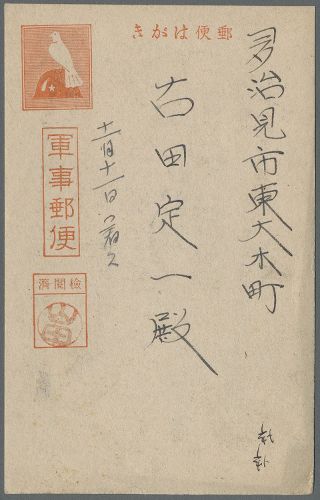 郵便はがき
多治見市東大木町
古田定一殿
十一月十一日
軍事郵便
検閲済